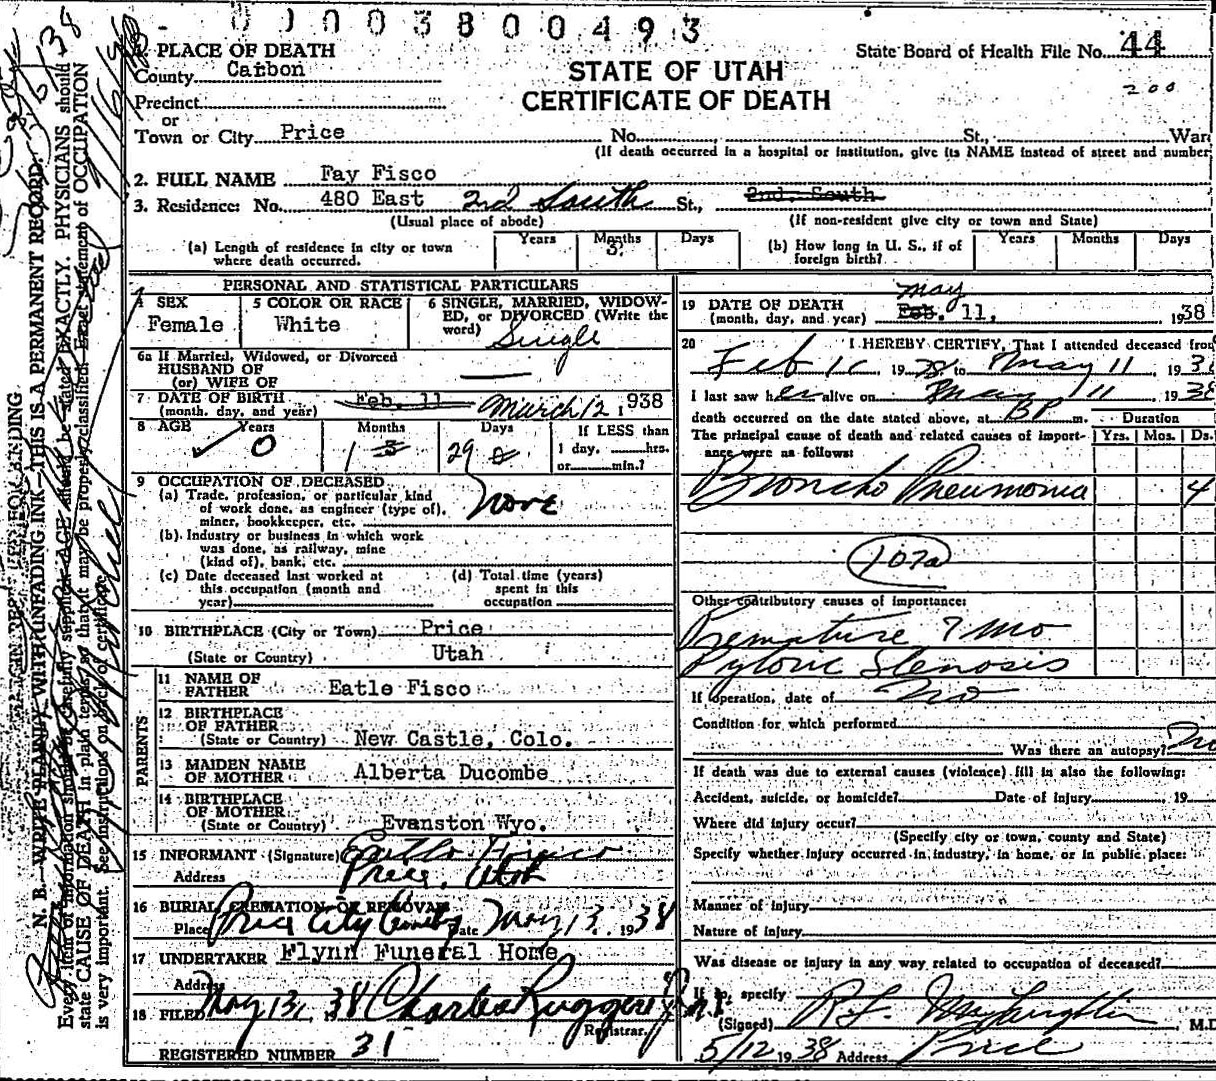 0 0 0 0 3 8 0 0 4 9 3
1 PLACE OF DEATH
County Carbon
State Board of Health File No. 44
200
STATE OF UTAH
CERTIFICATE OF DEATH
Precinct
or
Town or City Price No. St., War
(If death occurred in a hospital or institution, give its NAME instead of street and number
2. FULL NAME Fay Fisco
3. Residence: No. 480 East 2nd South St., 2nd. South
(Usual place of abode) (If non-resident give city or town and State)
(a) Length of residence in city or town where death occurred. Years Months 3. Days
(b) How long in U. S., if of foreign birth? Years Months Days
PERSONAL AND STATISTICAL PARTICULARS
4 SEX Female
5 COLOR OR RACE White
6 SINGLE, MARRIED, WIDOW-
ED, or DIVORCED (Write the
word) Single
6a If Married, Widowed, or Divorced
HUSBAND OF
(or) WIFE OF
7 DATE OF BIRTH
(month, day, and year) Feb. 11 March 12 1938
8 AGE Years 0 Months 1 3 Days 29
If LESS than
1 day, hrs.
or min.?
9 OCCUPATION OF DECEASED
(a) Trade, profession, or particular kind
of work done, as engineer (type of),
miner, bookkeeper, etc. None
(b) Industry or business in which work
was done, as railway, mine
(kind of), bank, etc.
(c) Date deceased last worked at
this occupation (month and
year)
(d) Total time (years)
spent in this
occupation
10 BIRTHPLACE (City or Town) Price
(State or Country) Utah
PARENTS
11 NAME OF
FATHER Eatle Fisco
12 BIRTHPLACE
OF FATHER
(State or Country) New Castle, Colo.
13 MAIDEN NAME
OF MOTHER Alberta Ducombe
14 BIRTHPLACE
OF MOTHER
(State or Country) Evanston Wyo.
15 INFORMANT (Signature)
Address Price, Utah
16 BURIAL, CREMATION OR REMOVAL
Place Price City Date May 13, 1938
17 UNDERTAKER Flynn Funeral Home
Address
18 FILED May 13, 1938 Charles Ruggeri
Registrar.
REGISTERED NUMBER 31
19 DATE OF DEATH
(month, day, and year) May Feb. 11, 1938
20 I HEREBY CERTIFY, That I attended deceased from
Feb 1938 to May 11 193
I last saw her alive on May 11, 1938
death occurred on the date stated above, at 8P m. Duration
The principal cause of death and related causes of import-
ance were as follows: Yrs. Mos. Ds.
Broncho Pneumonia 4
107a
Other contributory causes of importance:
Premature 7 mo
Pyloric Stenosis
If operation, date of No
Condition for which performed
Was there an autopsy? No
If death was due to external causes (violence) fill in also the following:
Accident, suicide, or homicide? Date of injury 19
Where did injury occur?
(Specify city or town, county and State)
Specify whether injury occurred in industry, in home, or in public place:
Manner of injury
Nature of injury
Was disease or injury in any way related to occupation of deceased?
If so, specify
(Signed) M.D
5/12 1938 Address Price
N. B.—WRITE PLAINLY, WITH UNFADING INK—THIS IS A PERMANENT RECORD.
Every item of information should be carefully supplied. AGE should be stated EXACTLY. PHYSICIANS should
state CAUSE OF DEATH in plain terms, so that it may be properly classified. Exact statement of OCCUPATION
is very important. See instructions on back of certificate.